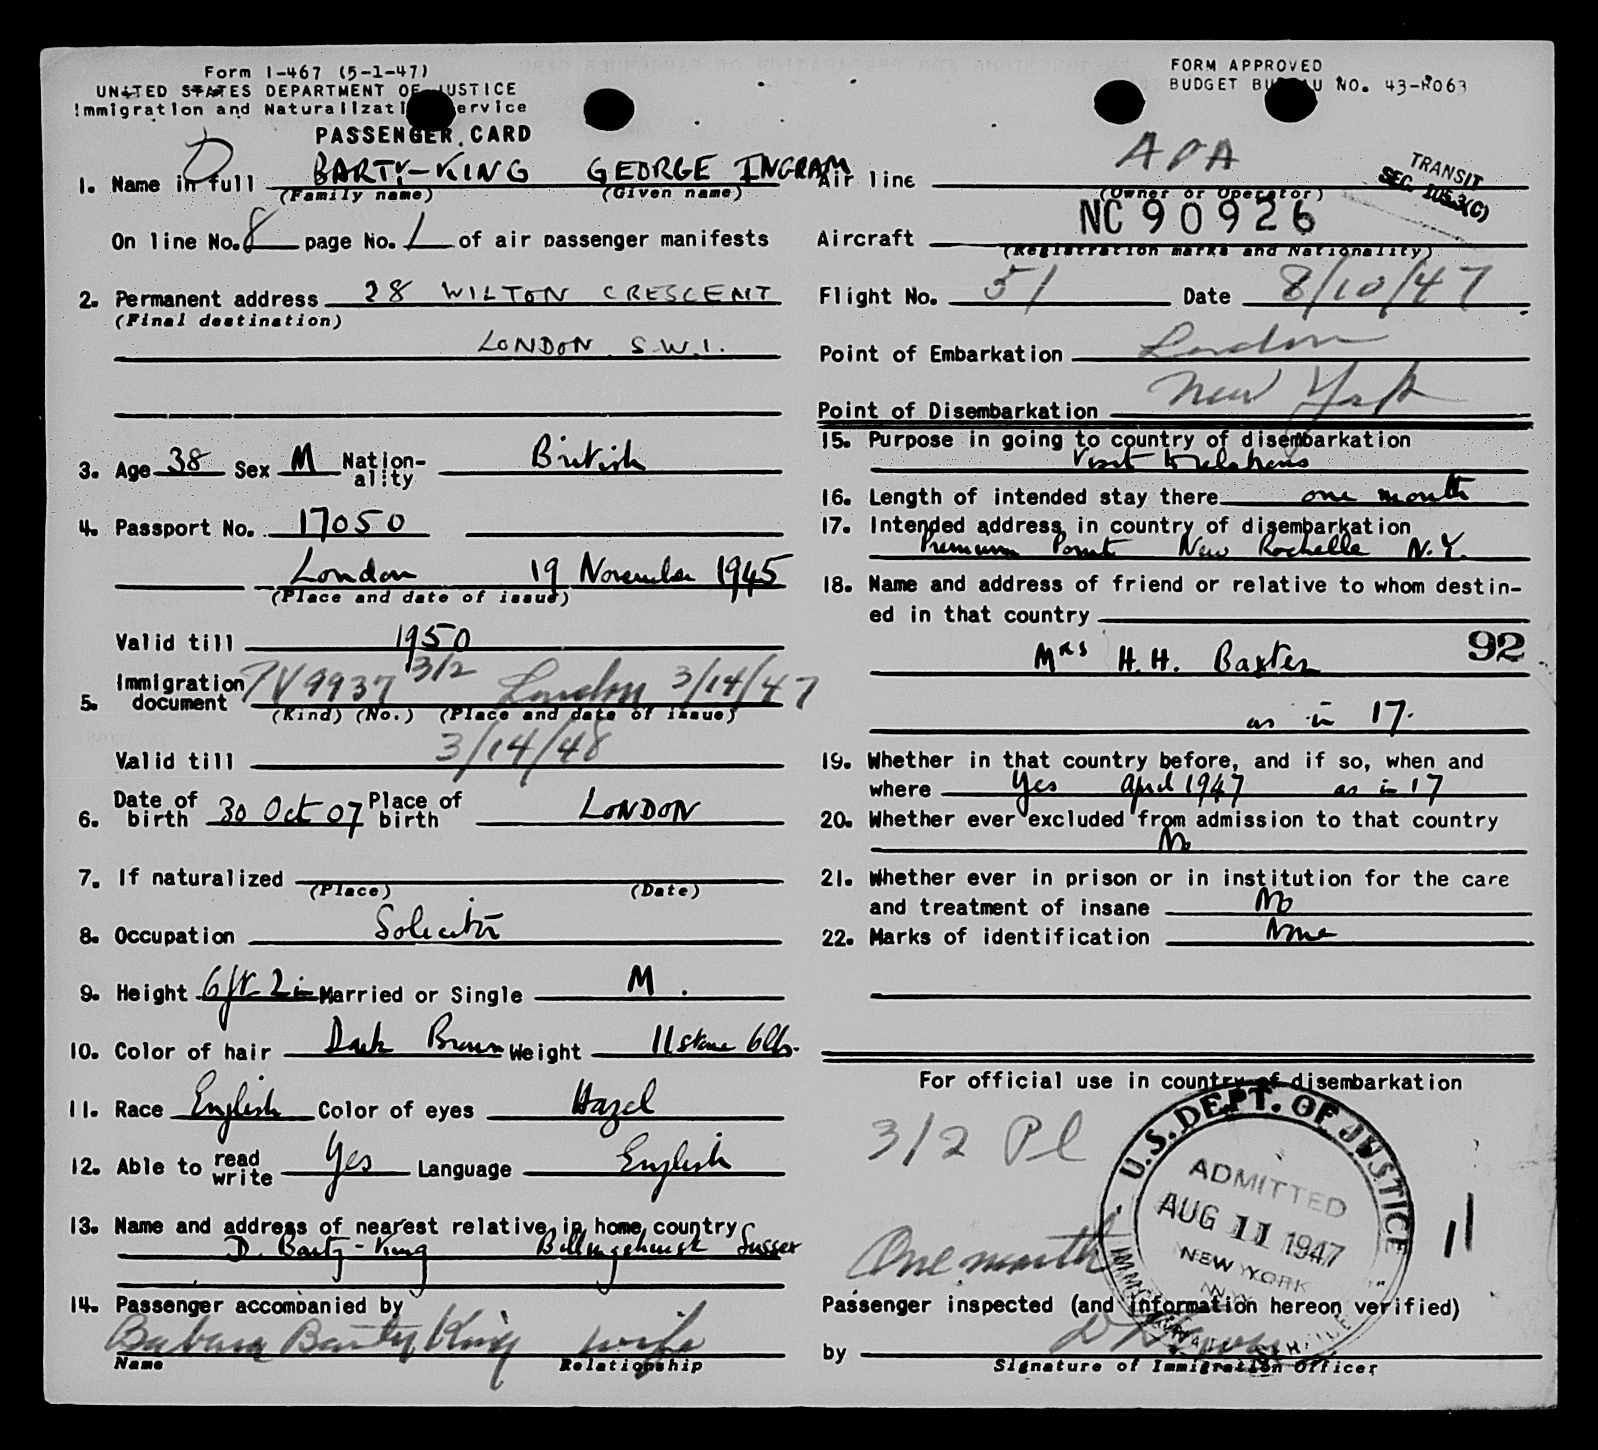 Form I-467 (5-1-47)
UNITED STATES DEPARTMENT OF JUSTICE
Immigration and Naturalization Service
PASSENGER CARD
FORM APPROVED
BUDGET BUREAU NO. 43-R063
D
1. Name in full BARTY-KING GEORGE INGRAM
(Family name) (Given name)
On line No. 8 page No. 1 of air passenger manifests
2. Permanent address 28 WILTON CRESCENT
(Final destination)
LONDON S.W.1.
3. Age 38 Sex M Nation-ality British
4. Passport No. 17050
London 19 November 1945
(Place and date of issue)
Valid till 1950
5. Immigration document TV 9937 3/2 London 3/14/47
(Kind) (No.) (Place and date of issue)
Valid till 3/14/48
6. Date of birth 30 Oct 07 Place of birth LONDON
7. If naturalized
(Place) (Date)
8. Occupation Solicitor
9. Height 6ft 2in Married or Single M.
10. Color of hair Dark Brown Weight 11 stone 6 lbs.
11. Race English Color of eyes Hazel
12. Able to read write Yes Language English
13. Name and address of nearest relative in home country
D. Barty-King Billingshurst Sussex
14. Passenger accompanied by
Barbara Barty King wife
Name Relationship
Air line AOA
(Owner or Operator)
TRANSIT
SEC. 105.3(C)
Aircraft NC90926
(Registration marks and Nationality)
Flight No. 51 Date 8/10/47
Point of Embarkation London
Point of Disembarkation New York
15. Purpose in going to country of disembarkation
Visit to relations
16. Length of intended stay there one month
17. Intended address in country of disembarkation
Premium Point New Rochelle N.Y.
18. Name and address of friend or relative to whom destin-
ed in that country
Mrs H.H. Baxter 92
as in 17.
19. Whether in that country before, and if so, when and
where Yes April 1947 as in 17
20. Whether ever excluded from admission to that country
No
21. Whether ever in prison or in institution for the care
and treatment of insane No
22. Marks of identification None
For official use in country of disembarkation
3/2 Pl
One month
U.S. DEPT. OF JUSTICE
ADMITTED
AUG 11 1947
NEW YORK
N.Y.
11
Passenger inspected (and information hereon verified)
by
Signature of Immigration Officer